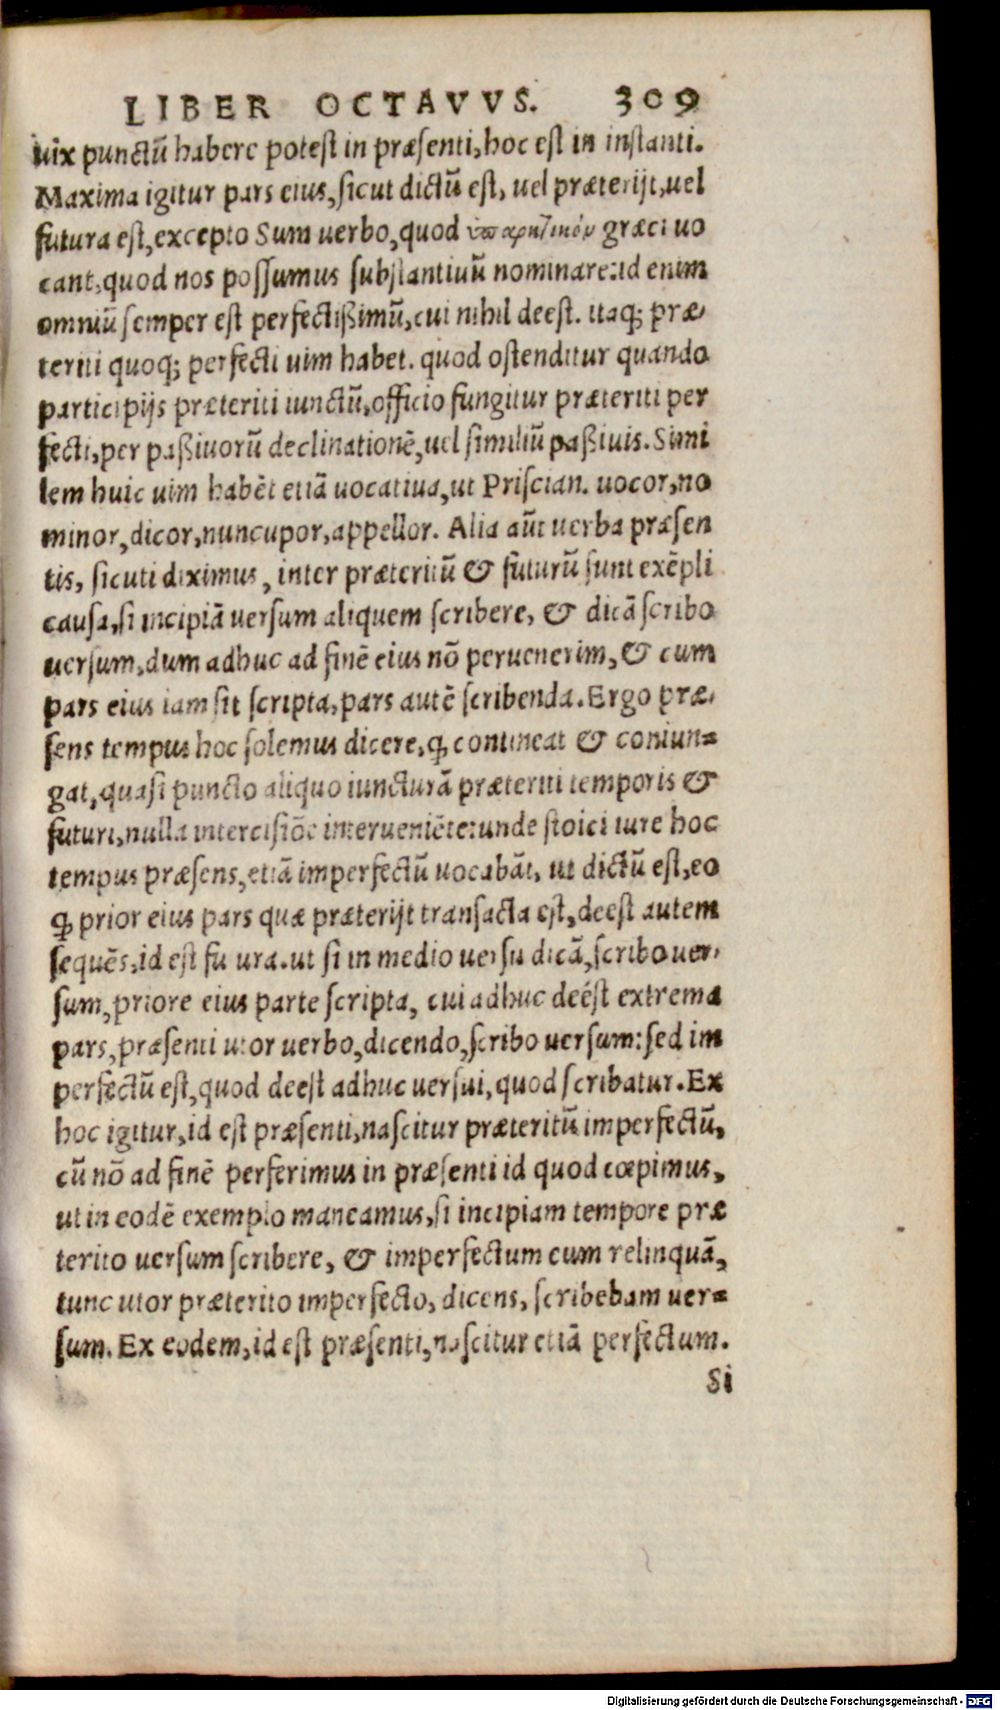 LIBER OCTAVVS. 309
uix punctũ habere potest in præsenti, hoc est in instanti.
Maxima igitur pars eius, sicut dictũ est, uel præterijt, uel
futura est, excepto Sum uerbo, quod ὑπαρκτικόν græci uo
cant, quod nos possumus substantiuũ nominare: id enim
omniũ semper est perfectißimũ, cui nihil deest. itaq; præ-
teriti quoq; perfecti uim habet. quod ostenditur quando
participijs præteriti iunctũ, officio fungitur præteriti per
fecti, per paßiuorũ declinationẽ, uel similiũ paßiuis. Simi
lem huic uim habẽt etiã uocatiua, ut Priscian. uocor, no
minor, dicor, nuncupor, appellor. Alia aũt uerba præsen
tis, sicuti diximus, inter præteritũ & futurũ sunt exẽpli
causa, si incipiã uersum aliquem scribere, & dicã scribo
uersum, dum adhuc ad finẽ eius nõ peruenerim, & cum
pars eius iam sit scripta, pars autẽ scribenda. Ergo præ-
sens tempus hoc solemus dicere, ꝙ contineat & coniun=
gat, quasi puncto aliquo iuncturã præteriti temporis &
futuri, nulla intercisiõe interueniẽte: unde stoici iure hoc
tempus præsens, etiã imperfectũ uocabãt, ut dictũ est, eo
ꝙ prior eius pars quæ præterijt transacta est, deest autem
sequẽs, id est fu ura. ut si in medio uersu dicã, scribo uer-
sum, priore eius parte scripta, cui adhuc deést extrema
pars, præsenti utor uerbo, dicendo, scribo uersum: sed im
perfectũ est, quod deest adhuc uersui, quod scribatur. Ex
hoc igitur, id est præsenti, nascitur præteritũ imperfectũ,
cũ nõ ad finẽ perferimus in præsenti id quod cœpimus,
ut in eodẽ exemplo maneamus, si incipiam tempore præ
terito uersum scribere, & imperfectum eum relinquã,
tunc utor præterito imperfecto, dicens, scribebam uer=
sum. Ex eodem, id est præsenti, nascitur etiã perfectum.
Si
Digitalisierung gefördert durch die Deutsche Forschungsgemeinschaft - DFG